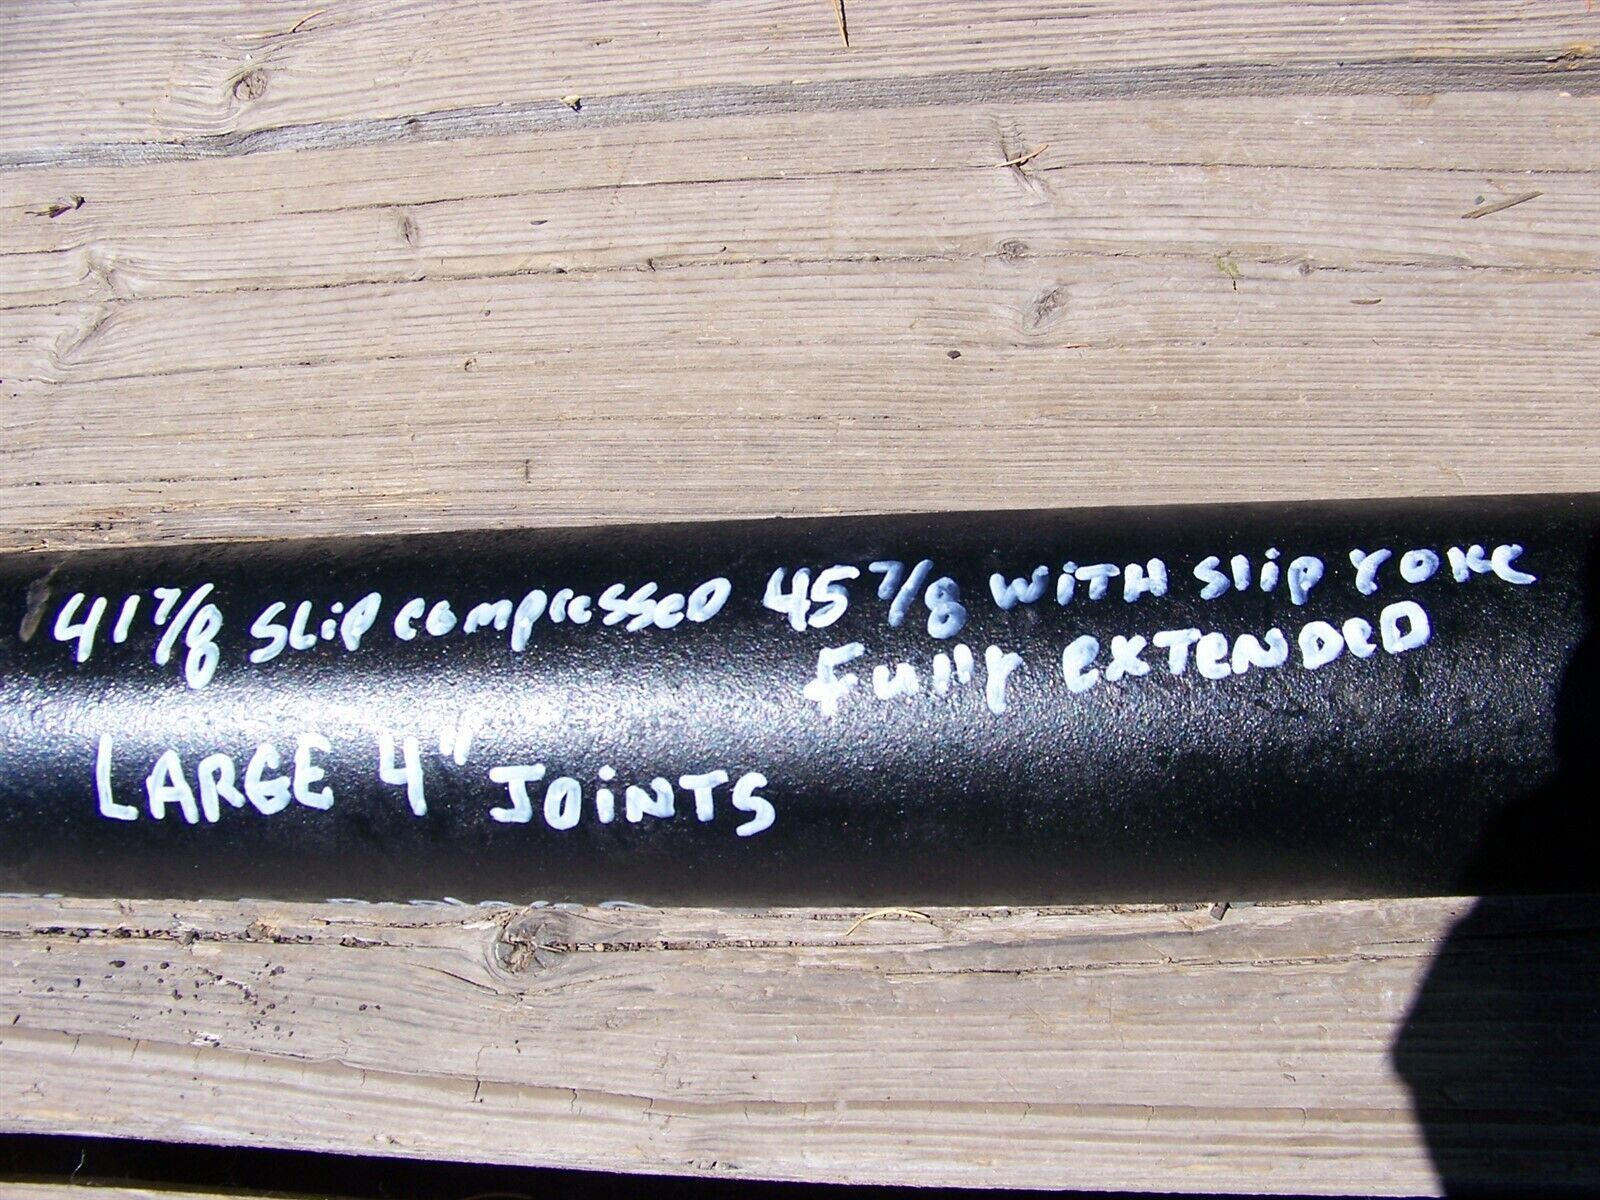 41 7/8 SLiP compressed 45 7/8 WiTH Slip YOKe
Fully exTeNDeD
LARGE 4" JOiNTS